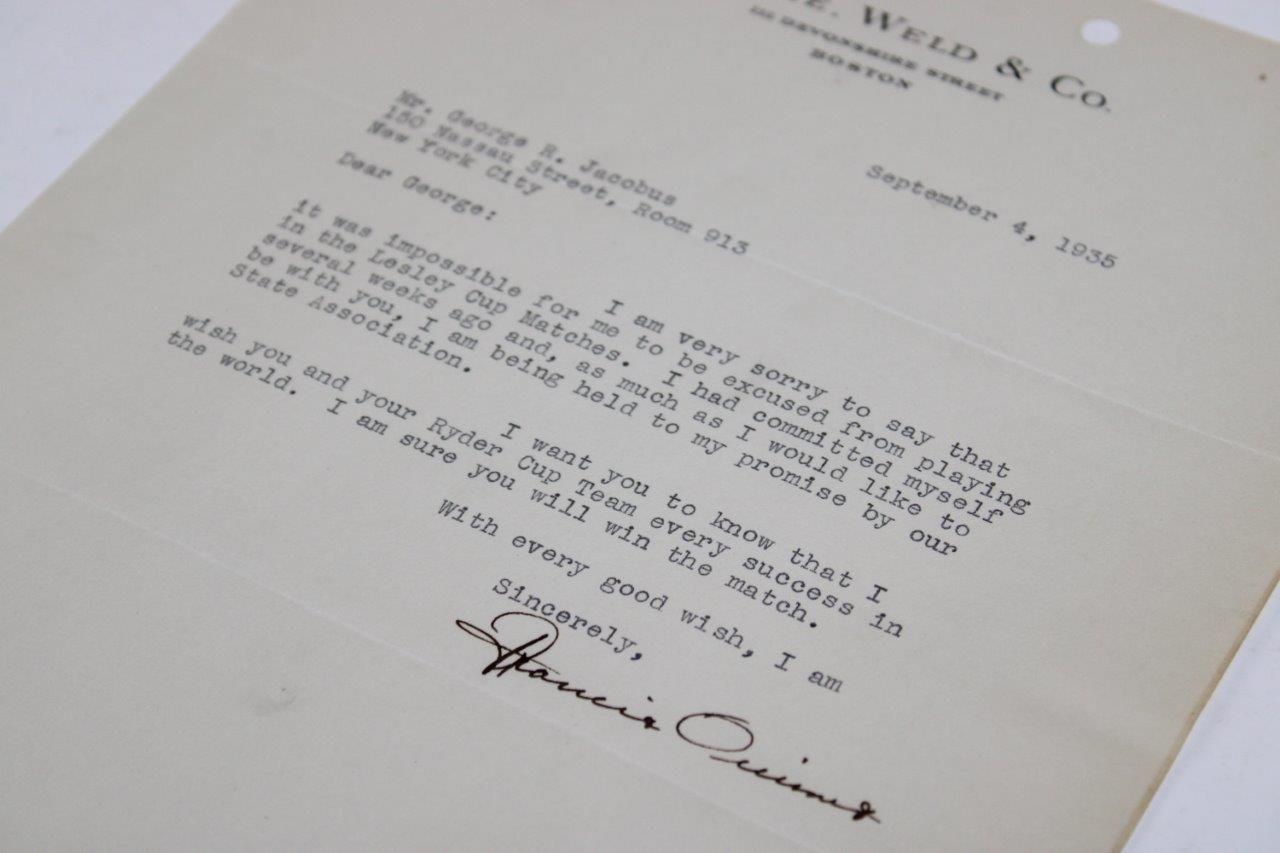 E. WELD & CO.
DEVONSHIRE STREET
BOSTON
September 4, 1935
Mr. George R. Jacobus
150 Nassau Street, Room 913
New York City
Dear George:
I am very sorry to say that
it was impossible for me to be excused from playing
in the Lesley Cup Matches. I had committed myself
several weeks ago and, as much as I would like to
be with you, I am being held to my promise by our
State Association.
I want you to know that I
wish you and your Ryder Cup Team every success in
the world. I am sure you will win the match.
With every good wish, I am
Sincerely,
Francis Ouimet